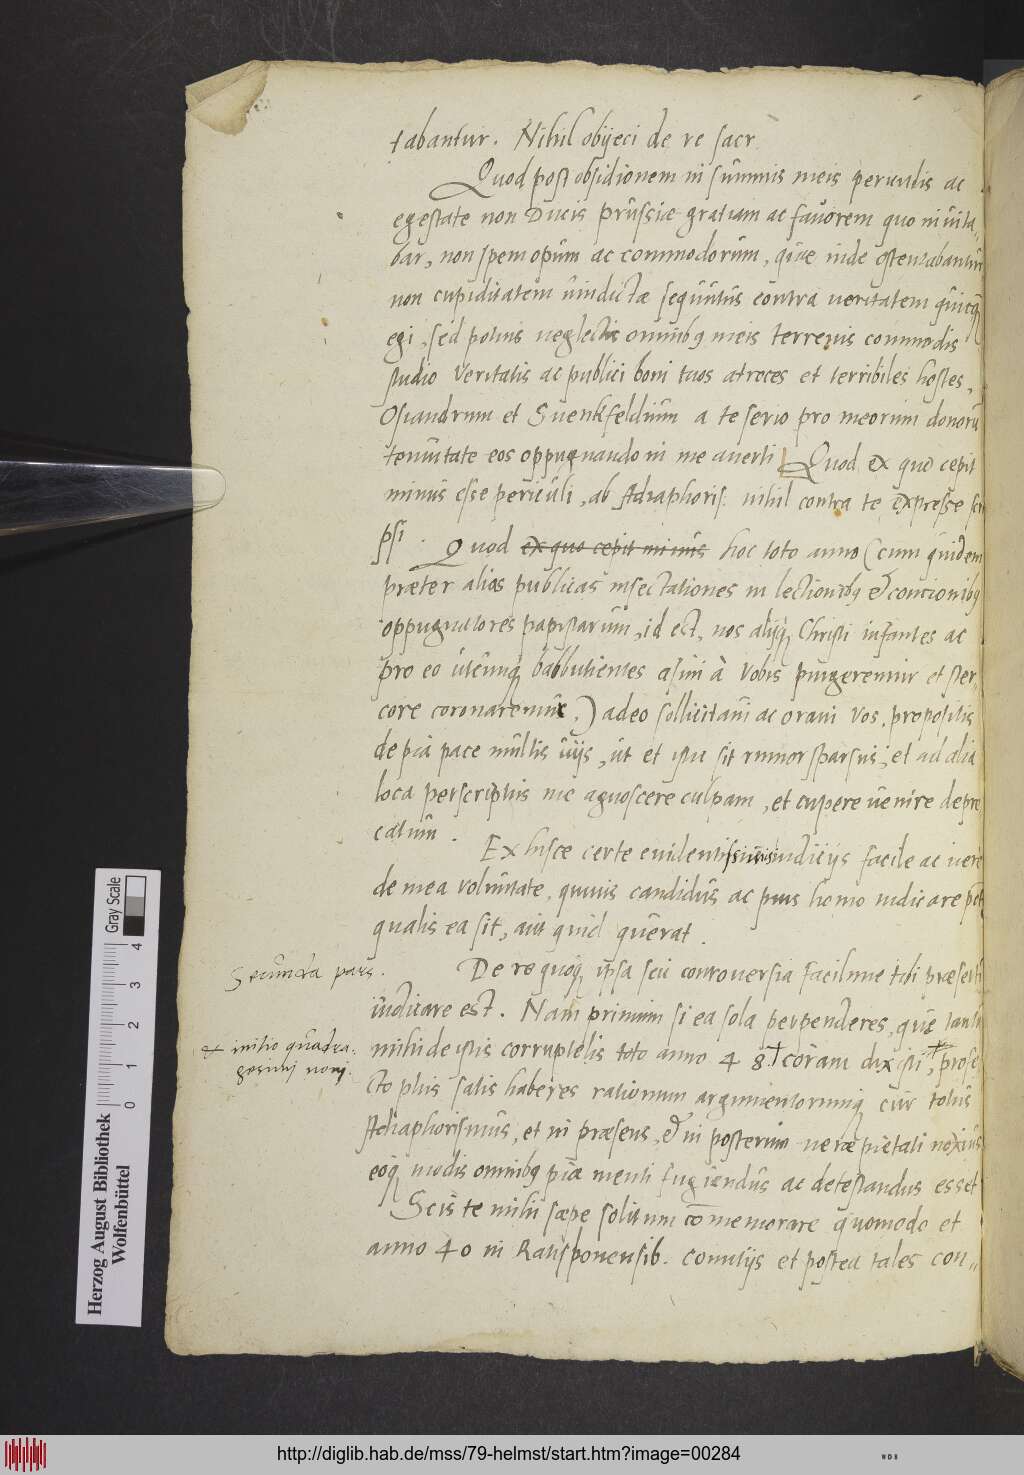 tabantur. Nihil obijeci de re sacr
Quod post obsidionem in summis meis periculis ac
egestate non Ducis prussie gratiam ac favorem quo invita-
bar, non spem opum ac commodorum, quae inde ostentabantur
non cupiditatem vindictæ sequutus contra veritatem quicq
egi, sed potius neglectis omnibq meis terrenis commodis
studio veritatis ac publici boni tuos atroces et terribiles hostes,
Osiandrum et Suenkfeldium a te serio pro meorum donorū
tenuitate eos oppugnando in me averti Quod ex quo cepit
minus esse periculi, ab Adiaphoris. nihil contra te expresse scri
psi. Quod ex quo cepit minus hoc toto anno (cum quidem
præter alias publicas insectationes in lectionibq et concionibq
oppugnatores papistarum, id est, nos alijq Christi infantes ac
pro eo utcunq babbutientes asini à vobis pingeremur et ster-
core coronaremur,) adeo sollicitavi ac oravi vos, propositis
de pia pace multis vijs, ut et istic sit rumor sparsus, et ad alia
loca perscriptus me agnoscere culpam, et cupere venire depre
catum.
Ex hisce certe evidentissimis indicijs facile ac vere
de mea voluntate, quivis candidus ac pius homo iudicare pōt
qualis ea sit, aut quid quærat.
Secunda pars.
De re quoq ipsa seu controversia facilime tibi præserti
iudicare est. Nam primum si ea sola perpenderes, quæ tantu
mihi de istis corruptelis toto anno 48 † coram dixisti, † profe
† initio quadra-
gesimi noni.
cto plus satis haberes rationum argumentorumq cur totus
Adiaphorismus, et in præsens, et in posterum veræ pietati noxius
eoq modis omnibq piæ menti fugiendus ac detestandus esset
Scis te mihi sæpe solitum cōmemorare quomodo et
anno 40 in Ratisponensib. comitijs et postea tales con-
Herzog August Bibliothek
Wolfenbüttel
0 1 2 3 4
Gray Scale
http://diglib.hab.de/mss/79-helmst/start.htm?image=00284
WDB